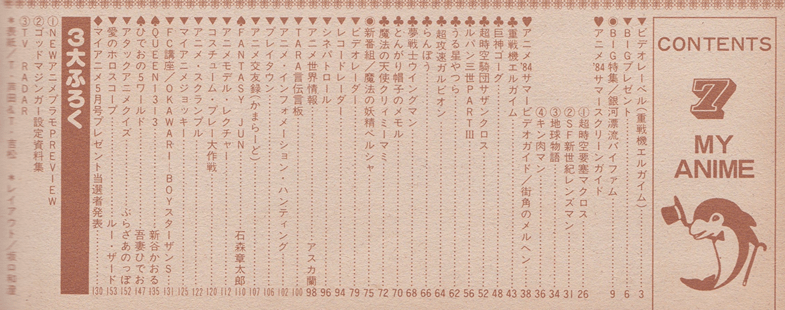 CONTENTS
7
MY
ANIME
♥ビデオレーベル(重戦機エルガイム) 3
♥BIGプレゼント 6
◉BIG特集/銀河漂流バイファム 9
♥アニメ'84サマースクリーンガイド
①超時空要塞マクロス 26
②SF新世紀レンズマン 31
③地球物語 34
④キン肉マン 36
♥アニメ'84サマービデオガイド/街角のメルヘン 38
♣重戦機エルガイム 43
♣巨神ゴーグ 48
♣超時空騎団サザンクロス 52
♣ルパン三世PARTIII 56
♣うる星やつら 62
♣超攻速ガルビオン 64
♣らんぽう 66
♣夢戦士ウイングマン 68
♣とんがり帽子のメモル 70
♣魔法の天使クリィミーマミ 72
◉新番組/魔法の妖精ペルシャ 75
♥ビデオレーダー 79
♥レコードレーダー 94
♥シネパトロール 96
♥アニメ世界情報 アスカ蘭 98
♥TARA伝言板 100
♥アニメ・インフォメーション・ハンティング 102
♥プレイタウン 106
♥アニメ交友録(かまらーど) 107
♠FANTASY JUN 石森章太郎 110
♥アニメモデル・レクチャー 112
♥コスチューム・プレイヤー大作戦 120
♥アニメ・スクランブル 122
♥マイアニメジョッキー 125
♥FC講座/OKAWARI BOYスターザンS 131
♠QUEEN1313 新谷かおる 135
♠ひでおの5ワールド 吾妻ひでお 147
♠アタックアニメクイズ ぶらざあのっぽ 152
♥愛のホロスコープ ルー・ザード 153
♦マイアニメ5月号プレゼント当選者発表 130
3大ふろく
①NEWアニメプラモPREVIEW
②ゴッドマジンガー設定資料集
③TV RADAR